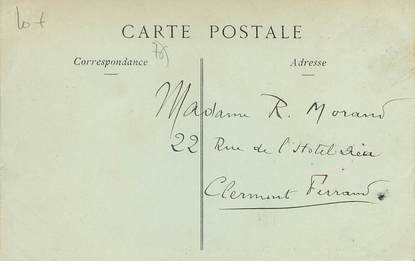 lot
CARTE POSTALE
Correspondance
Adresse
Madame R. Morand
22 Rue de l'Hotel Dieu
Clermont Ferrand